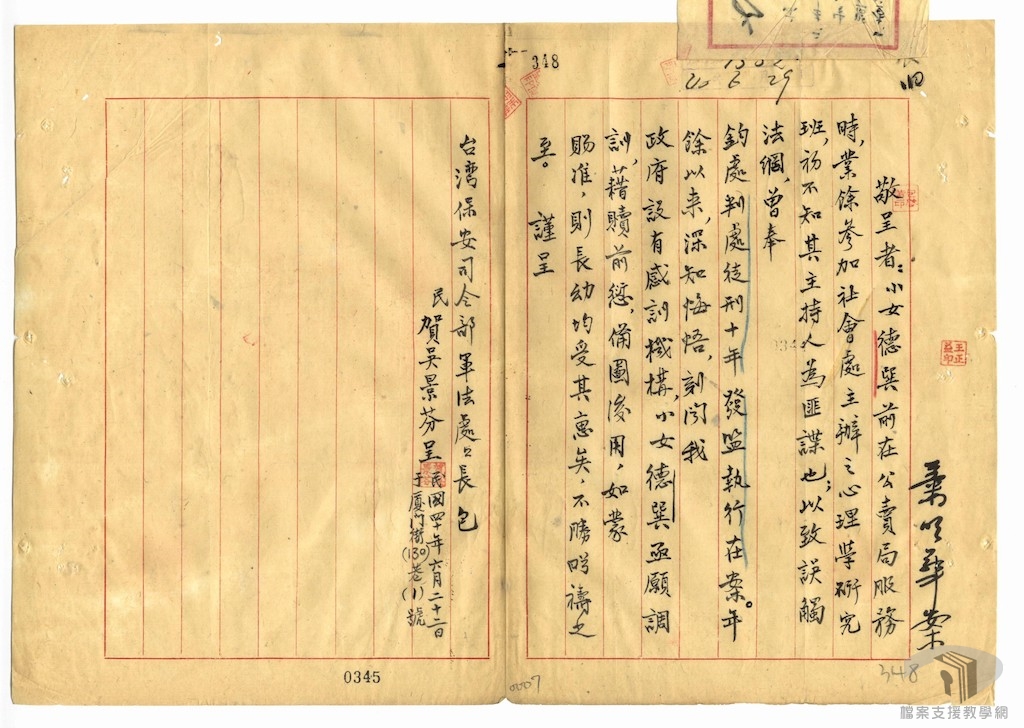 348
40 6 29
葉明華案
敬呈者：小女德巽前在公賣局服務
時，業餘參加社會處主辦之心理學研究
班，初不知其主持人為匪諜也，以致誤觸
法網，曾奉
鈞處判處徒刑十年發監執行在案。年
餘以來，深知悔悟，刻聞我
政府設有感訓機構，小女德巽亟願調
訓，藉贖前愆，備圖後用，如蒙
賜准，則長幼均受其惠矣，不勝盼禱之
至。謹呈
台湾保安司令部軍法處々長包
民賀吳景芬呈
民國四十年六月二十二日
于厦门街(130)巷(1)號
王正
0345
0007
348
檔案支援教學網